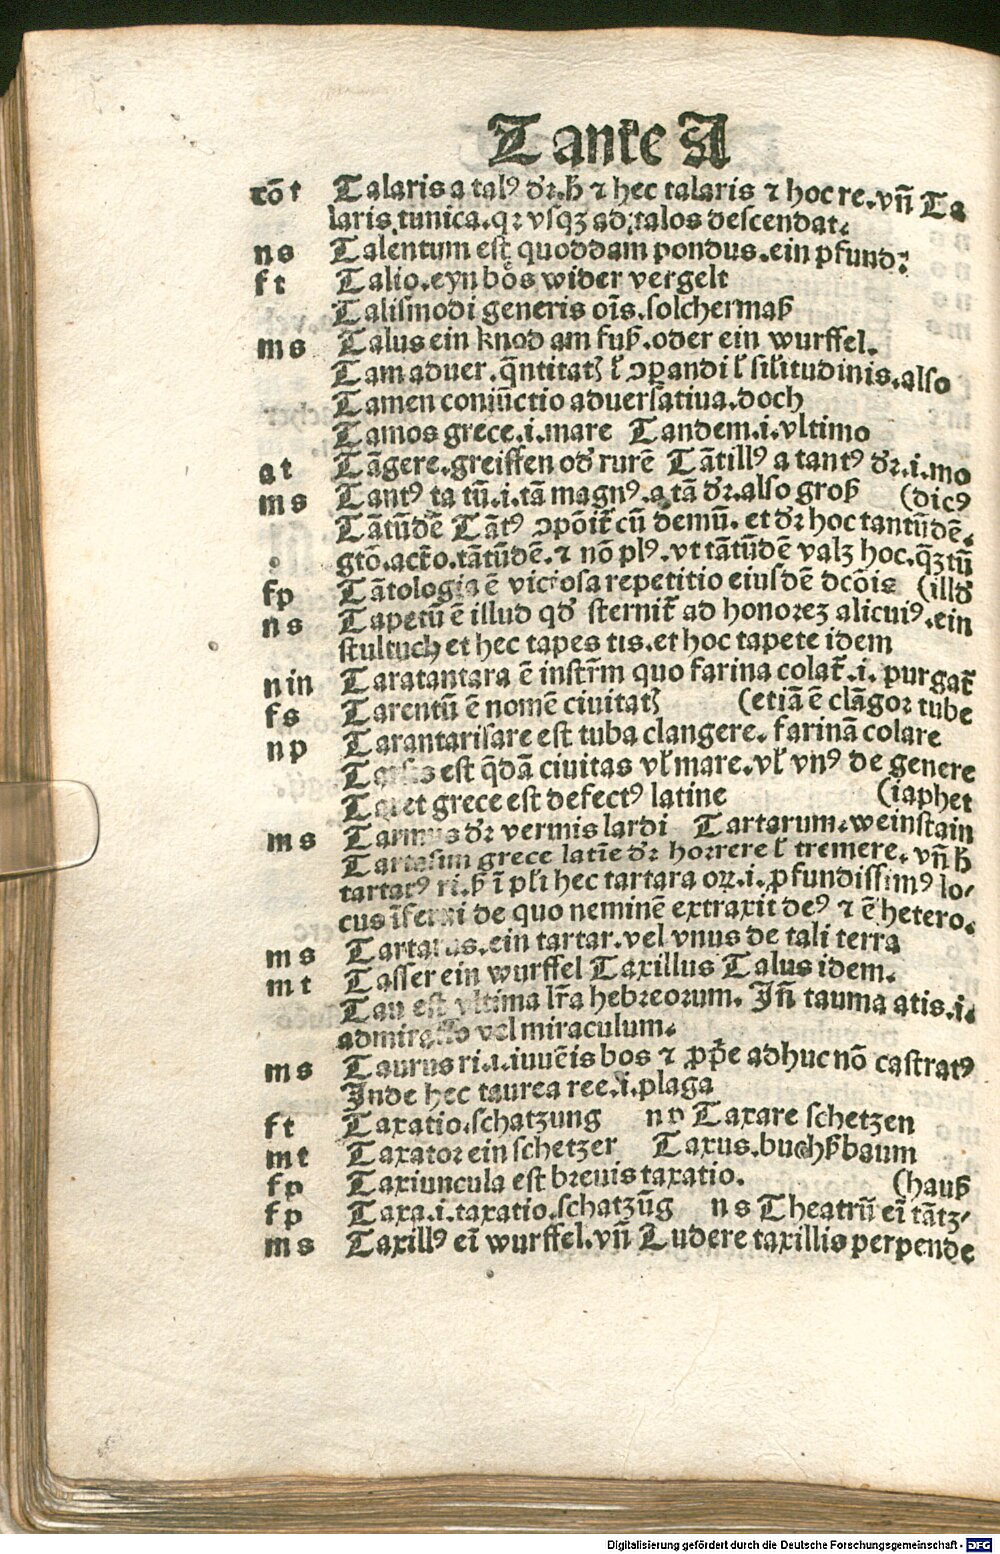 Tante A
cōt Talaris a talꝰ dr̄.h̄ ⁊ hec talaris ⁊ hoc re.vn̄ Ta
laris tunica.qꝛ vſqꝫ ad talos deſcendat.
ns Talentum eſt quoddam pondus.ein pfund:
ft Talio.eyn bös wider vergelt
Taliſmodi generis oīs.ſolchermaß
ms Talus ein knod am fuß.oder ein wurffel.
Tam aduer.q̄ntitatꝭ ł ꝯꝑandi ł ſiłitudinis.alſo
Tamen coniūctio aduerſatiua.doch
Tamos grece.i.mare Tandem.i.vltimo
at Tāgere.greiffen od̓ rurē Tātillꝰ a tantꝰ dr̄.i.mo
ms Tantꝰ ta tū.i.tā magnꝰ.a tā dr̄.alſo groß (dicꝰ
Tātūdē Tātꝰ ꝯpōit̄ cū demū. et dr̄ hoc tantūdē.
gtō.actō.tātūdē.⁊ nō plꝰ.vt tātūdē valꝫ hoc.qꝫtū
fp Tātologia ē vicioſa repetitio eiuſdē dcōis (illd̓
ns Tapetū ē illud qd̓ ſternit̄ ad honoreꝫ alicuiꝰ.ein
ſtultuch et hec tapes tis.et hoc tapete idem
nin Taratantara ē inſtr̄m quo farina colat̄.i. purgat̄
fs Tarentū ē nomē ciuitatꝭ (etiā ē clāgoꝛ tube
np Tarantariſare eſt tuba clangere. farinā colare
eſt q̄dā ciuitas vł mare.vł vnꝰ de genere
grece eſt defectꝰ latine (iaphet
ms Tarmus dr̄ vermis lardi Tartarum.weinſtain
Tartaſim grece latīe dr̄ horrere ł tremere. vn̄ h̄
tartarꝰ ri.ß ī płi hec tartara oꝝ.i.ꝓfundiſſimꝰ lo⸗
cus īferni de quo neminē extraxit deꝰ ⁊ ē hetero.
ms Tartarus.ein tartar.vel vnus de tali terra
mt Taſſer ein wurffel Taxillus Talus idem.
Tau eſt vltima lr̄a hebreorum. Jn̄ tauma atis.i.
admiratio vel miraculum.
ms Taurus ri.i.iuuēis bos ⁊ ꝓpe adhuc nō caſtratꝰ
Inde hec taurea ree.i.plaga
ft Taxatio.ſchatzung np Taxare ſchetzen
mt Taxatoꝛ ein ſchetzer Taxus.buchßbaum
fp Taxiuncula eſt bꝛeuis taxatio. (hauß
fp Taxa.i.taxatio.ſchatzūg ns Theatrū eī tātz⸗
ms Taxillꝰ eī wurffel.vn̄ Ludere taxillis perpende
Digitalisierung gefördert durch die Deutsche Forschungsgemeinschaft - DFG